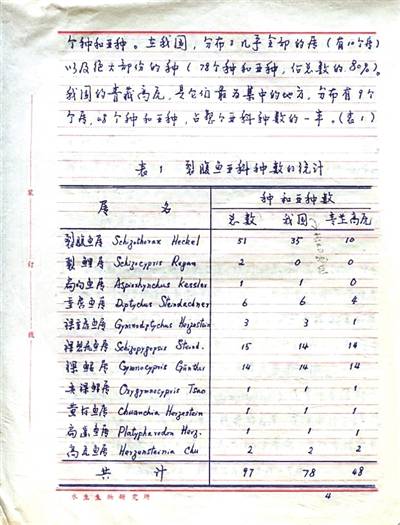 个种和亚种。在我国，分布了几乎全部的属（有10个属）
以及绝大部份的种（78个种和亚种，佔总数的80%）。
我国的青藏高原，是它们最为集中的地方，分布有9个
个属，48个种和亚种，占整个亚科种数的一半。（表1）
表1 裂腹鱼亚科种数的统计
属 名 种和亚种数
总数 我国 青藏高原
裂腹鱼属 Schizothorax Heckel 51 35 10
裂鲤属 Schizocypris Regan 2 0 0
扁吻鱼属 Aspiorhynchus Kessler 1 1 0
重唇鱼属 Diptychus Steindachner 6 6 4
裸重唇鱼属 Gymnodiptychus Herzenstein 3 3 1
裸裂尻鱼属 Schizopygopsis Steind. 15 14 14
裸鲤属 Gymnocypris Günther 14 14 14
尖裸鲤属 Oxygymnocypris Tsao 1 1 1
黄河鱼属 Chuanchia Herzenstein 1 1 1
扁咽鱼属 Platypharodon Herz. 1 1 1
高原鱼属 Herzensteinia Chu 2 2 2
共 计 97 78 48
装
订
线
水生生物研究所
4